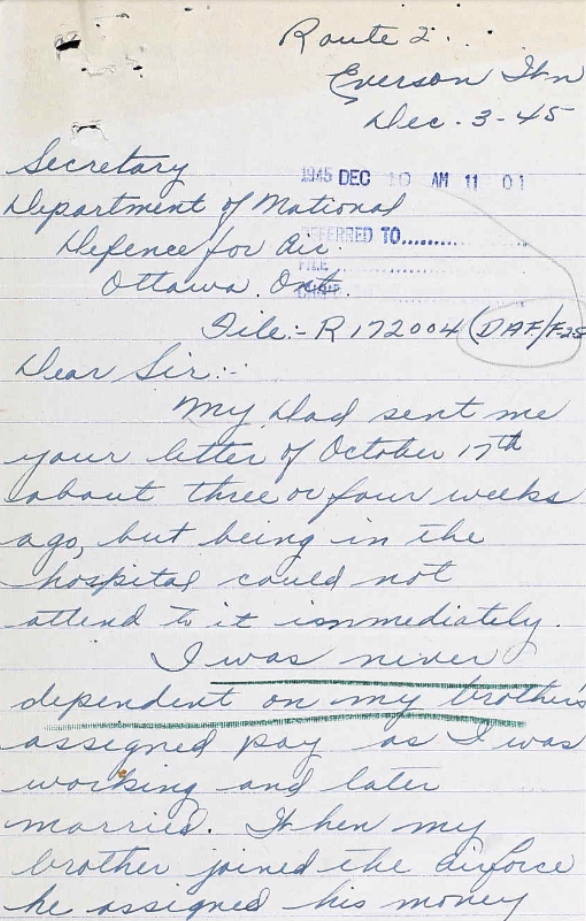 Route 2.
Everson Wn
Dec - 3 - 45
Secretary
1945 DEC 10 AM 11 01
Department of National
Defence for Air.
REFERRED TO
FILE
Ottawa. Ont.
File:- R172004 (DAF/F-28
Dear Sir:-
My Dad sent me
your letter of October 17th
about three or four weeks
ago, but being in the
hospital could not
attend to it immediately.
I was never
dependent on my brother's
assigned pay as I was
working and later
married. When my
brother joined the airforce
he assigned his money